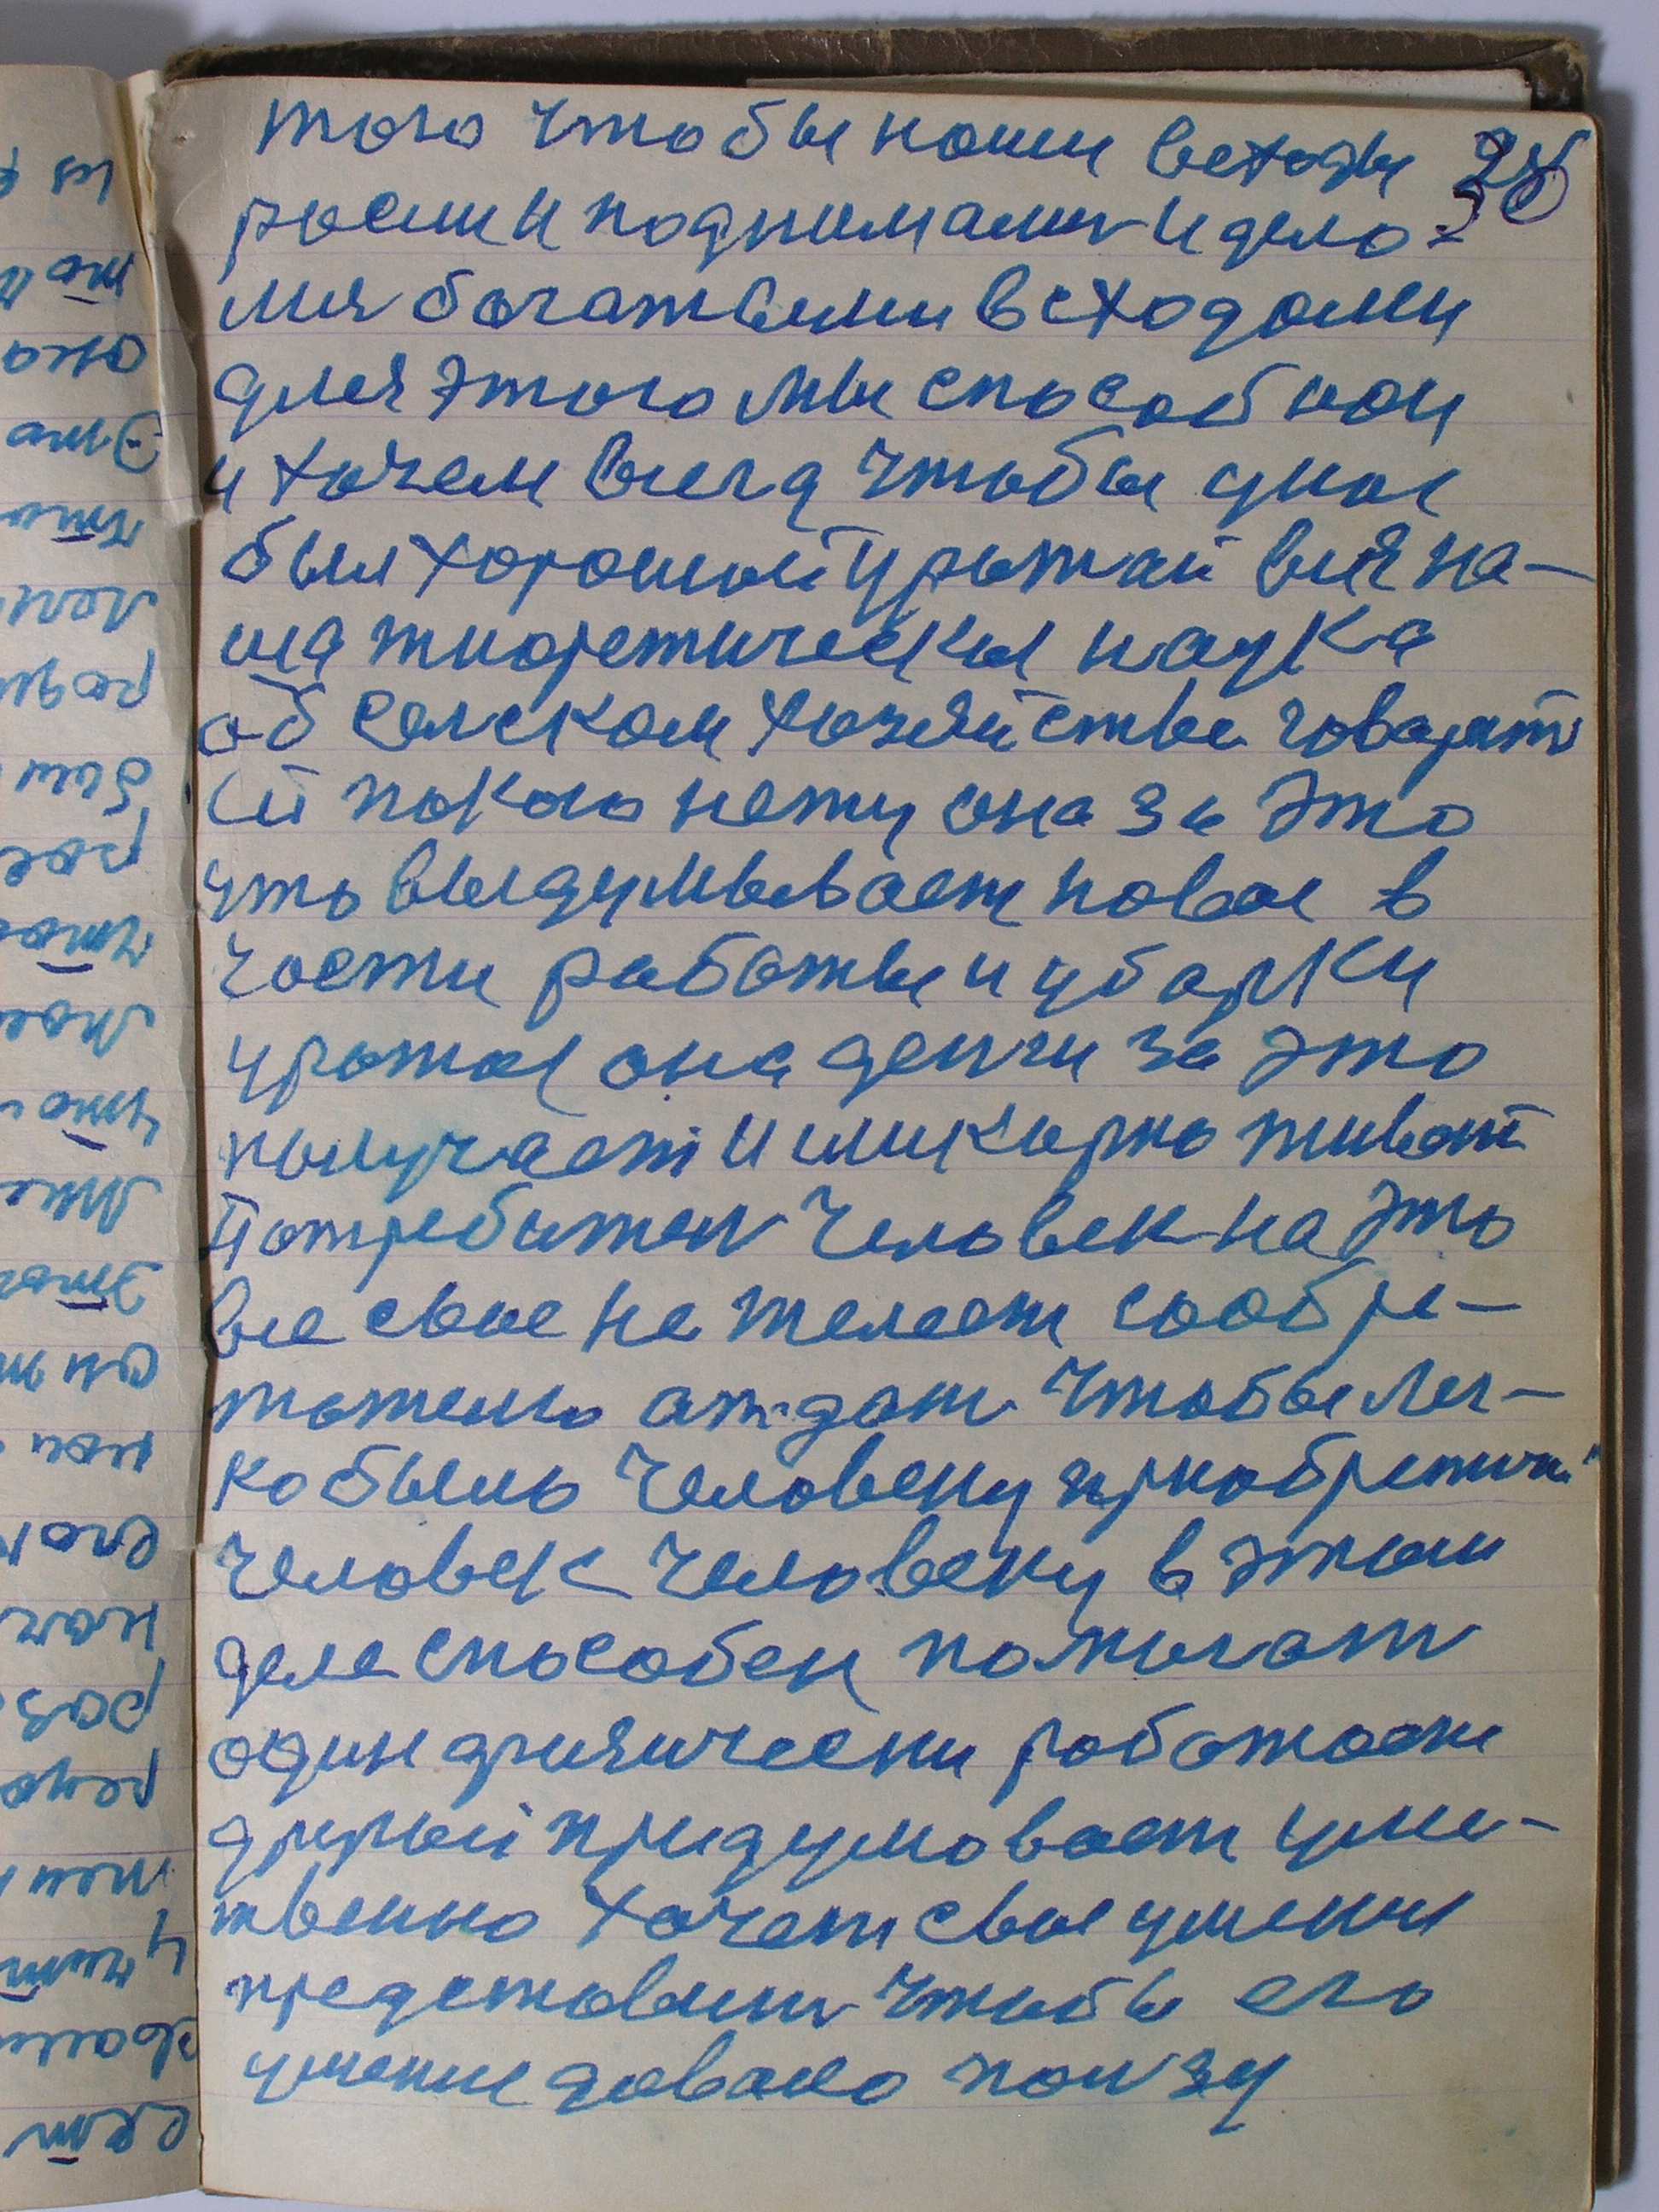 того чтобы наши всходы 28
росли и поднимались и дело-
лися богатыми всходами
для этого мы способнои
и хочем всегда чтобы унас
был хороший урожай вся на-
ша тиоретическия наука
об селском хозяйстве говарят
ей покою нету она за это
что выдумывает новое в
части работы и уборки
урожая она денги за это
получает и шикарно живет
Потребител человек на это
все свое не желает соображе-
отдат чтобы лег-
ко было человеку приобретит
человек человеку в этом
деле способен помогат
один физически работает
другой придумовает умс-
твенно хочет свое умение
представит чтобы его
умение давало ползу